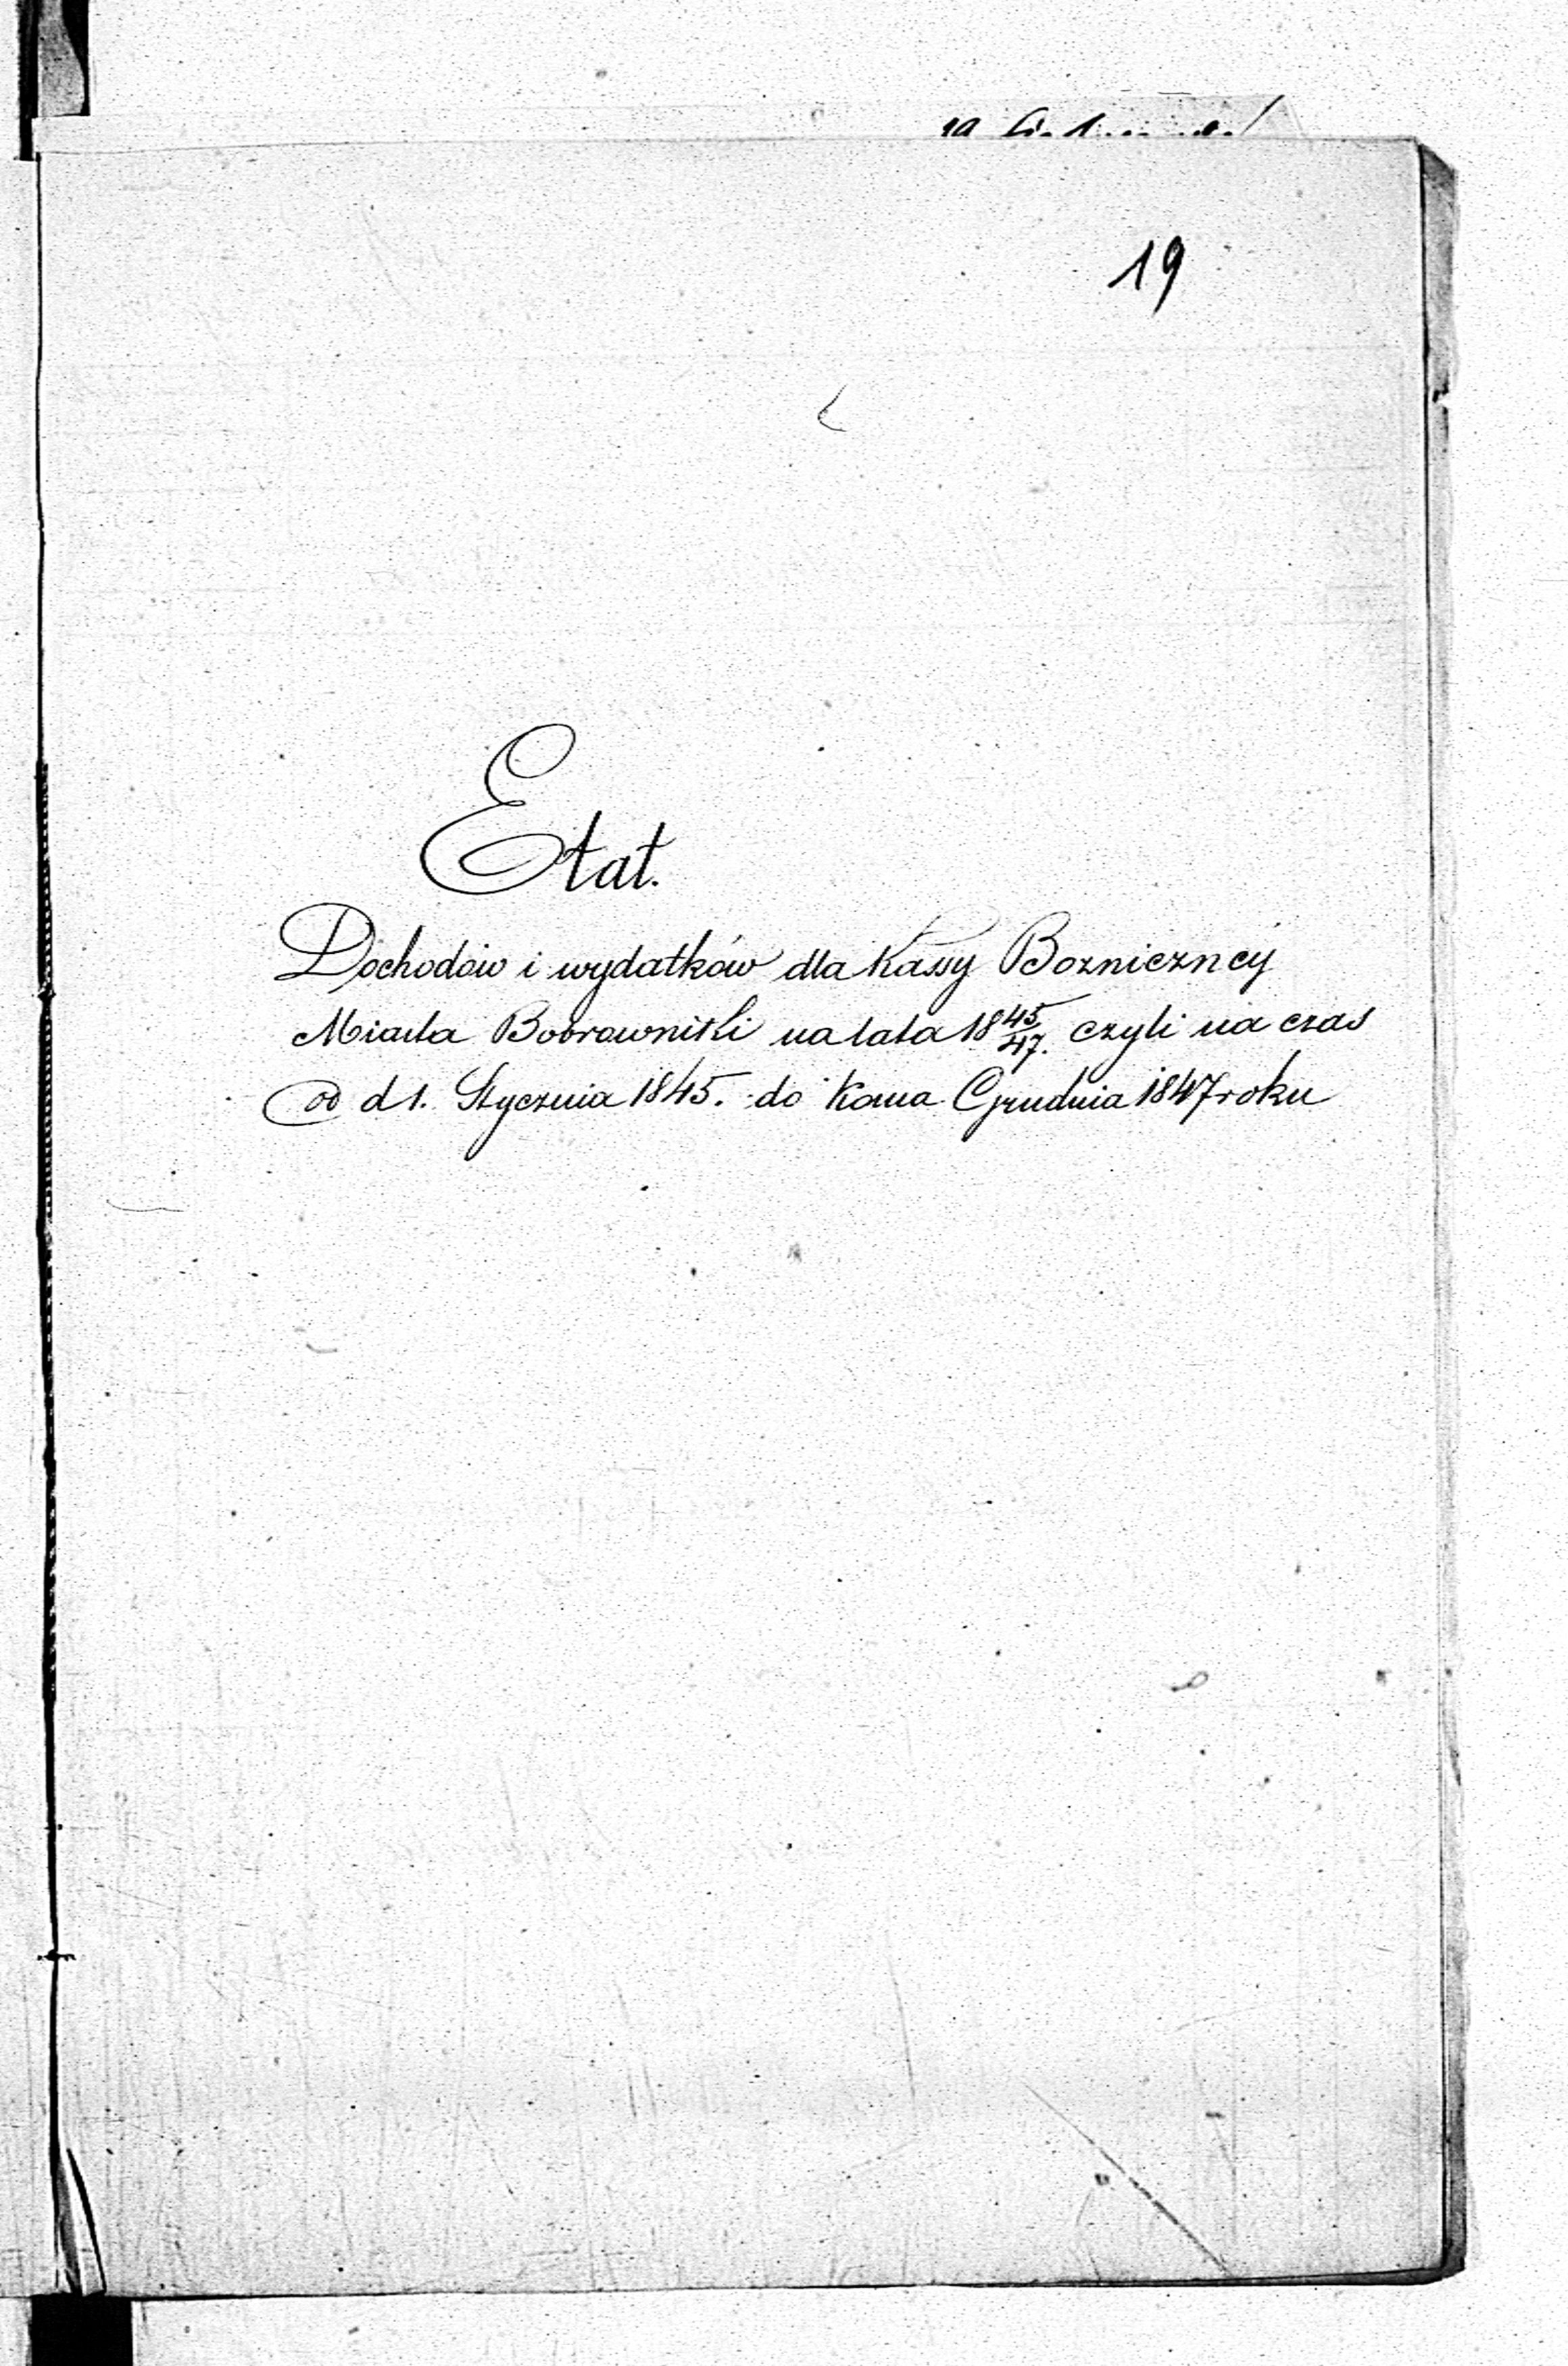 19
Etat.
Dochodów i wydatków dla Kassy Bozniczney
Miasta Bobrowniki na lata 18 45/47. czyli na czas
od d 1. Stycznia 1845. do Konca Grudnia 1847 roku